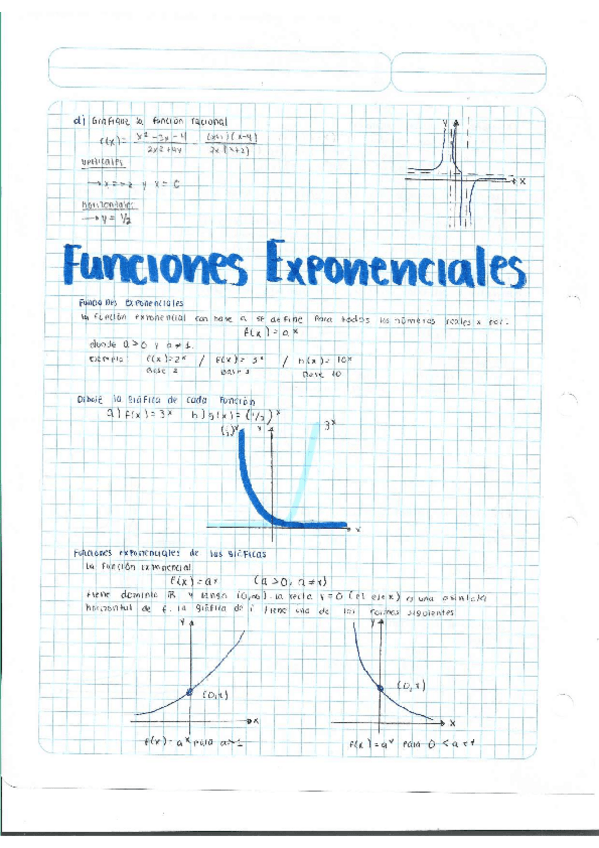 d) Grafique la función racional
f(x) = x² - 3x - 4 / 2x² + 4x = (x+1)(x-4) / 2x(x+2)
verticales:
→ x = -2 y x = 0
horizontales:
→ y = 1/2
y
x
Funciones Exponenciales
Funciones exponenciales
la función exponencial con base a se define para todos los números reales x por:
f(x) = aˣ
donde a > 0 y a ≠ 1.
ejemplo: f(x) = 2ˣ / f(x) = 3ˣ / h(x) = 10ˣ
Base 2 Base 3 Base 10
Dibuje la gráfica de cada función
a) f(x) = 3ˣ b) g(x) = (1/3)ˣ
(1/3)ˣ y 3ˣ
x
Funciones exponenciales de las gráficas
La función exponencial
f(x) = aˣ (a > 0, a ≠ 1)
tiene dominio R y rango (0,∞). la recta y = 0 (el eje x) es una asíntota
horizontal de f. la gráfica de f tiene una de las formas siguientes
y y
(0,x) (0,x)
x x
f(x) = aˣ para a > 1 f(x) = aˣ para 0 < a < 1